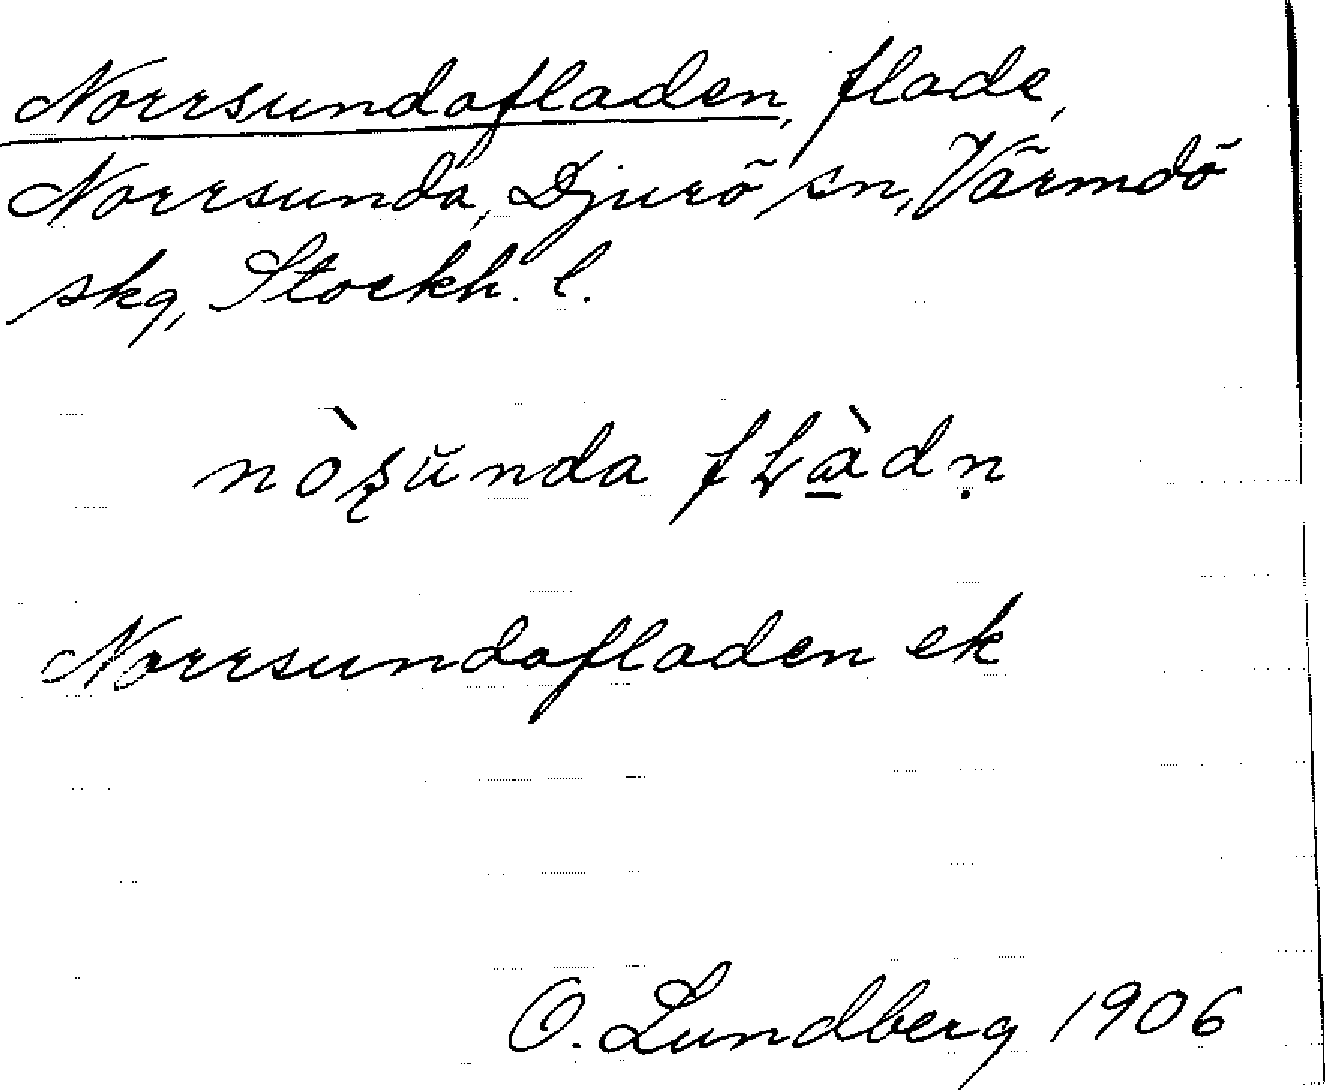 Norrsundafladen, flade,
Norrsunda, Djurö sn, Värmdö
skg, Stockh. l.
nòʂŭnda fⱡà̱dṇ
Norrsundafladen ek
O. Lundberg 1906